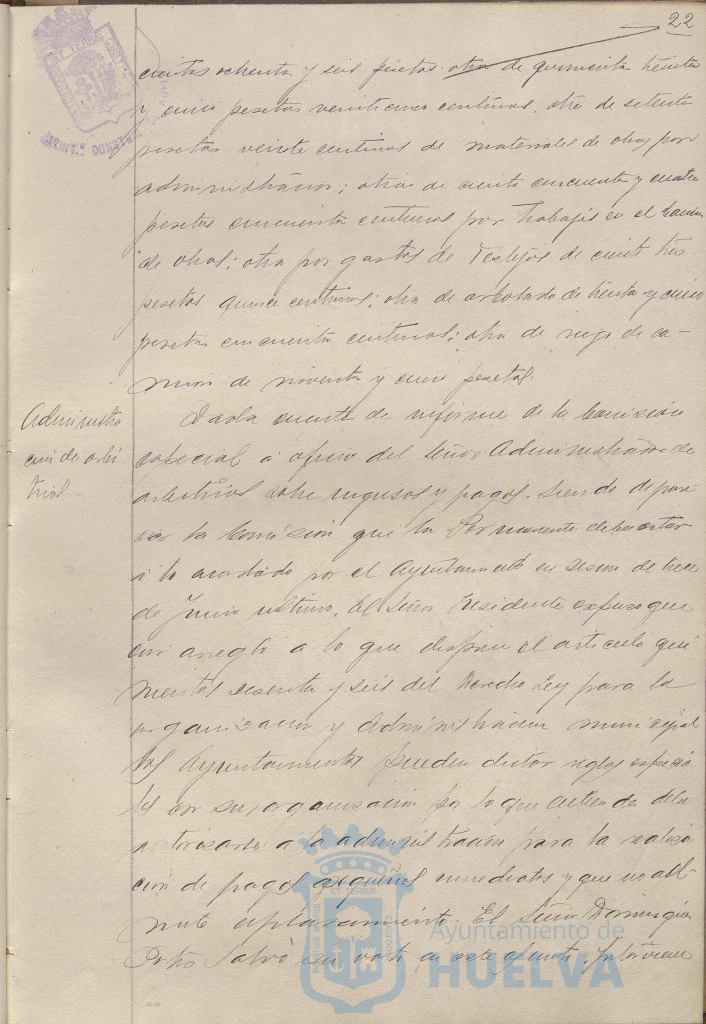 22
cientas ochenta y seis pesetas otra de quinienta treinta
y cinco pesetas veinticinco centimos, otra de setenta
pesetas veinte centimos de materiales de obras por
administración; otras de ciento cincuenta y cuatro
pesetas cincuenta centimos por trabajos en el
de obras; otra por gastos de Festejos de ciento tres
pesetas quince centimos; otra de arbolado de treinta y cinco
pesetas cincuenta centimos; otra de riego de ca-
mion de noventa y cinco pesetas.
Administra
cion de arbi
trios
Dada cuenta de informe de la Comisión
especial a oficio del Señor Administrador de
arbitrios sobre ingresos y pagos. siendo de pare
cer la Comisión que la Permanente debe estar
a lo acordado por el Ayuntamiento en sesion de trece
de Junio ultimo, El Señor Presidente expuso que
con arreglo a lo que dispone el articulo qui
nientos sesenta y seis del Decreto Ley para la
organización y Administración municipal
los Ayuntamientos pueden dictar reglas especia
les en su organización por lo que entiende debe
autorizarse a la administración para la realiza
cion de pagos pequeños inmediatos y que no ad-
mite aplazamiento. El Señor Dominguez
salvó su voto en este asunto. Interviene
Ayuntamiento de
HUELVA